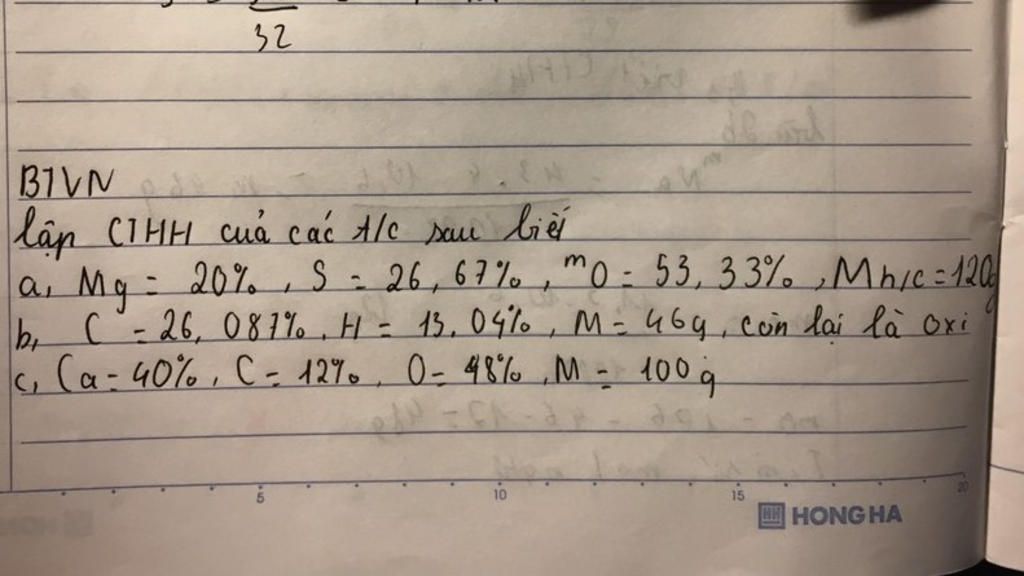 32
BTVN
lập CTHH của các h/c sau biết
a, Mg = 20%, S = 26,67%, mO = 53,33%, M h/c = 120g
b, C = 26,087%, H = 13,04%, M = 46g, còn lại là oxi
c, Ca = 40%, C = 12%, O = 48%, M = 100g
5 10 15 20
HONG HA